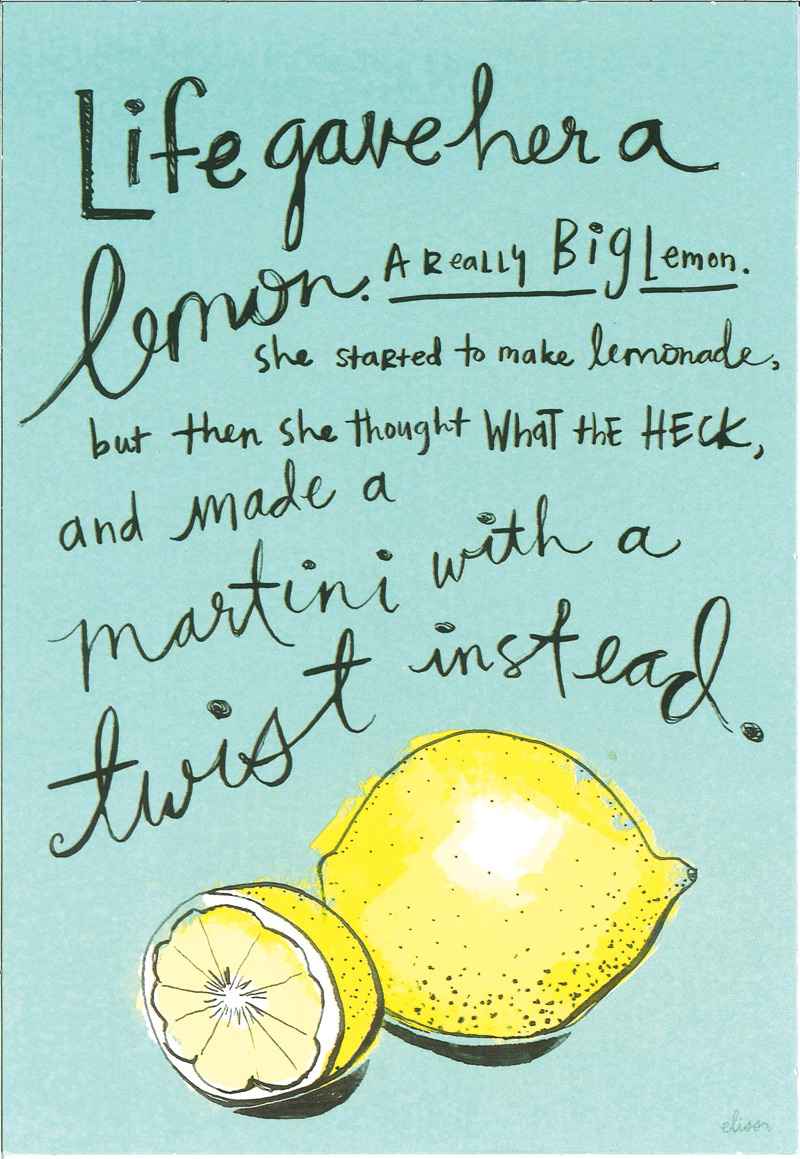 Life gave her a
lemon. A REALLY BIG Lemon.
she started to make lemonade,
but then she thought WHAT thE HECK,
and made a
martini with a
twist instead.